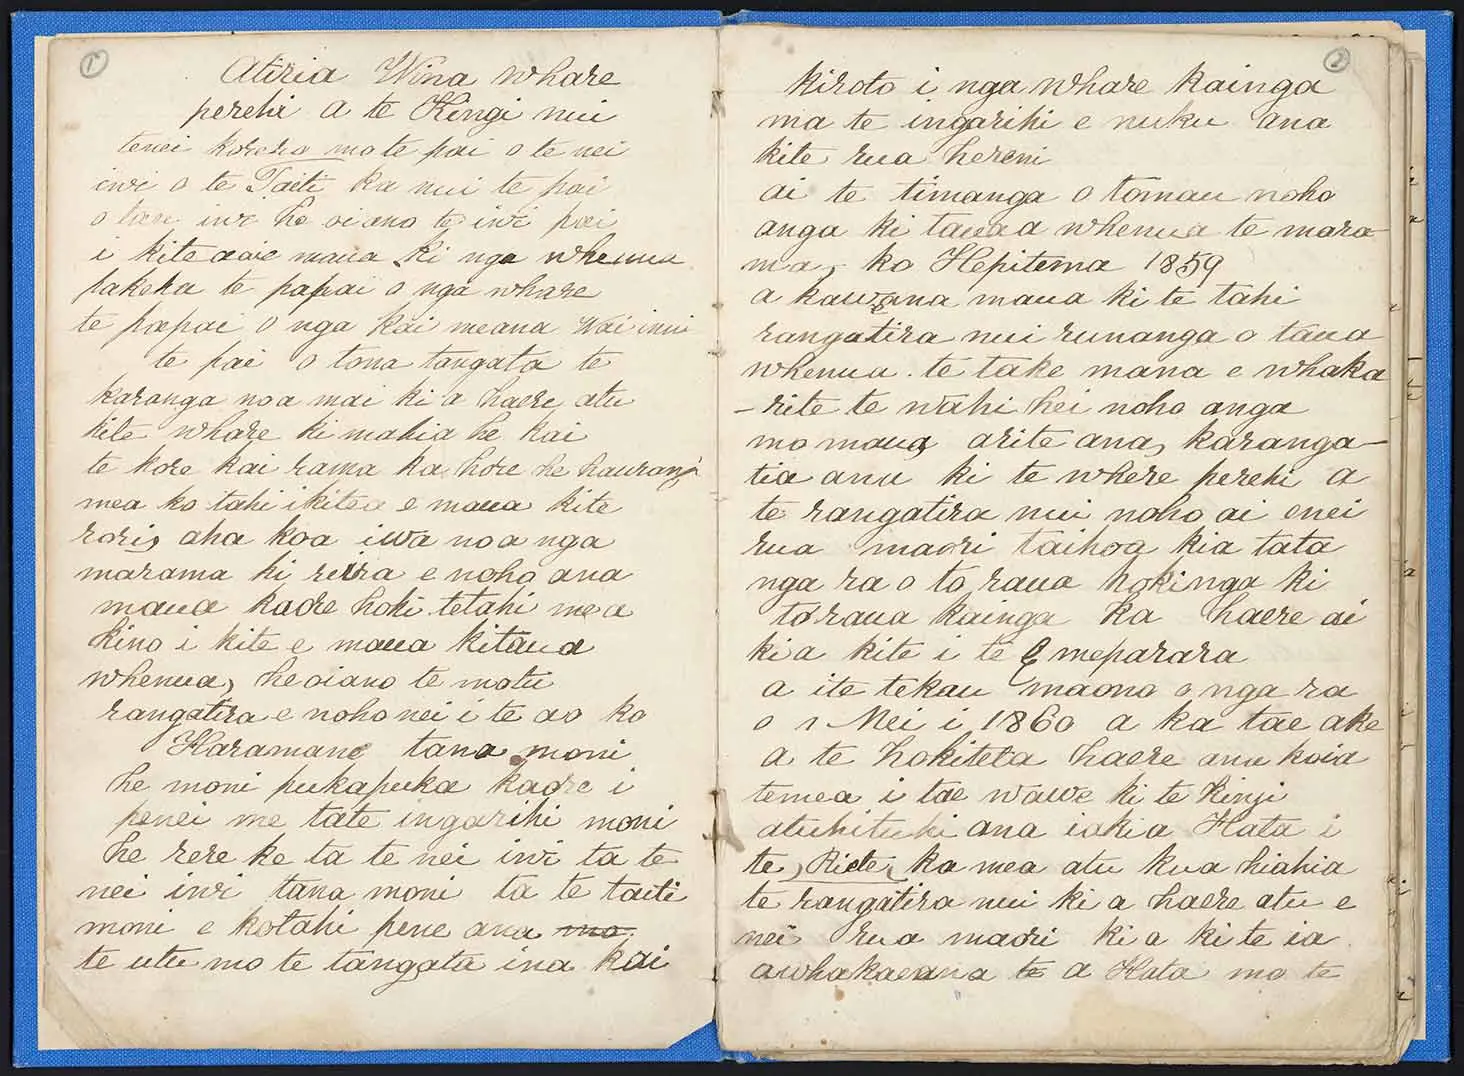 1
Atiria Wina whare
perehi a te Kingi nui
tenei korero mo te pai o te nei
iwi o te Taiti ka nui te pai
o tene iwi he oi ano te iwi pai
i kite aaie maua ki nga whenua
pakeha te papai o nga whare
te papai o nga kai meana Wai inu
te pai o tona tangata te
karanga noa mai ki a haere atu
kite whare ki mahia he kai
te kore kai rama ka hore he haurangi
mea ko tahi i kitea e maua kite
rori, aha koa iwa noa nga
marama ki reira e noho ana
maua kaore hoki tetahi mea
kino i kite e maua kitaua
whenua, heoiano te motu
rangatira e noho nei i te ao ko
Haramane tana moni
he moni pukapuka kaore i
penei me tate ingarihi moni
he rere ke ta te nei iwi ta te
nei iwi tana moni ta te taiti
moni e kotahi pene ana mo
te utu mo te tangata ina kai
2
kiroto i nga whare kainga
ma te ingarihi e nuku ana
kite rua hereni
ai te timanga o tomau noho
anga ki tauaa whenua te mara-
ma, ko Hepitema 1859
a kaweana maua ki te tahi
rangatira nui runanga o taua
whenua. te take mana e whaka
-rite te wahi hei noho anga
mo maua arite ana, karanga-
tia anu ki te where perehi a
te rangatira nui noho ai enei
rua maori taihoa kia tata
nga ra o to raua hokinga ki
to raua kainga ka haere ai
kia kite i te Emeparara
a ite tekau maono o nga ra
o n Mei i 1860 a ka tae ake
a te hokitela haere anu koia
temea i tae wawe ki te kinji
atuhituhi ana iakia Hata i
te, Riete, ka mea atu kua hiahia
te rangatira nui ki a haere atu e
nei rua maori ki a kite ia
awhakaeana te a Hata mo te